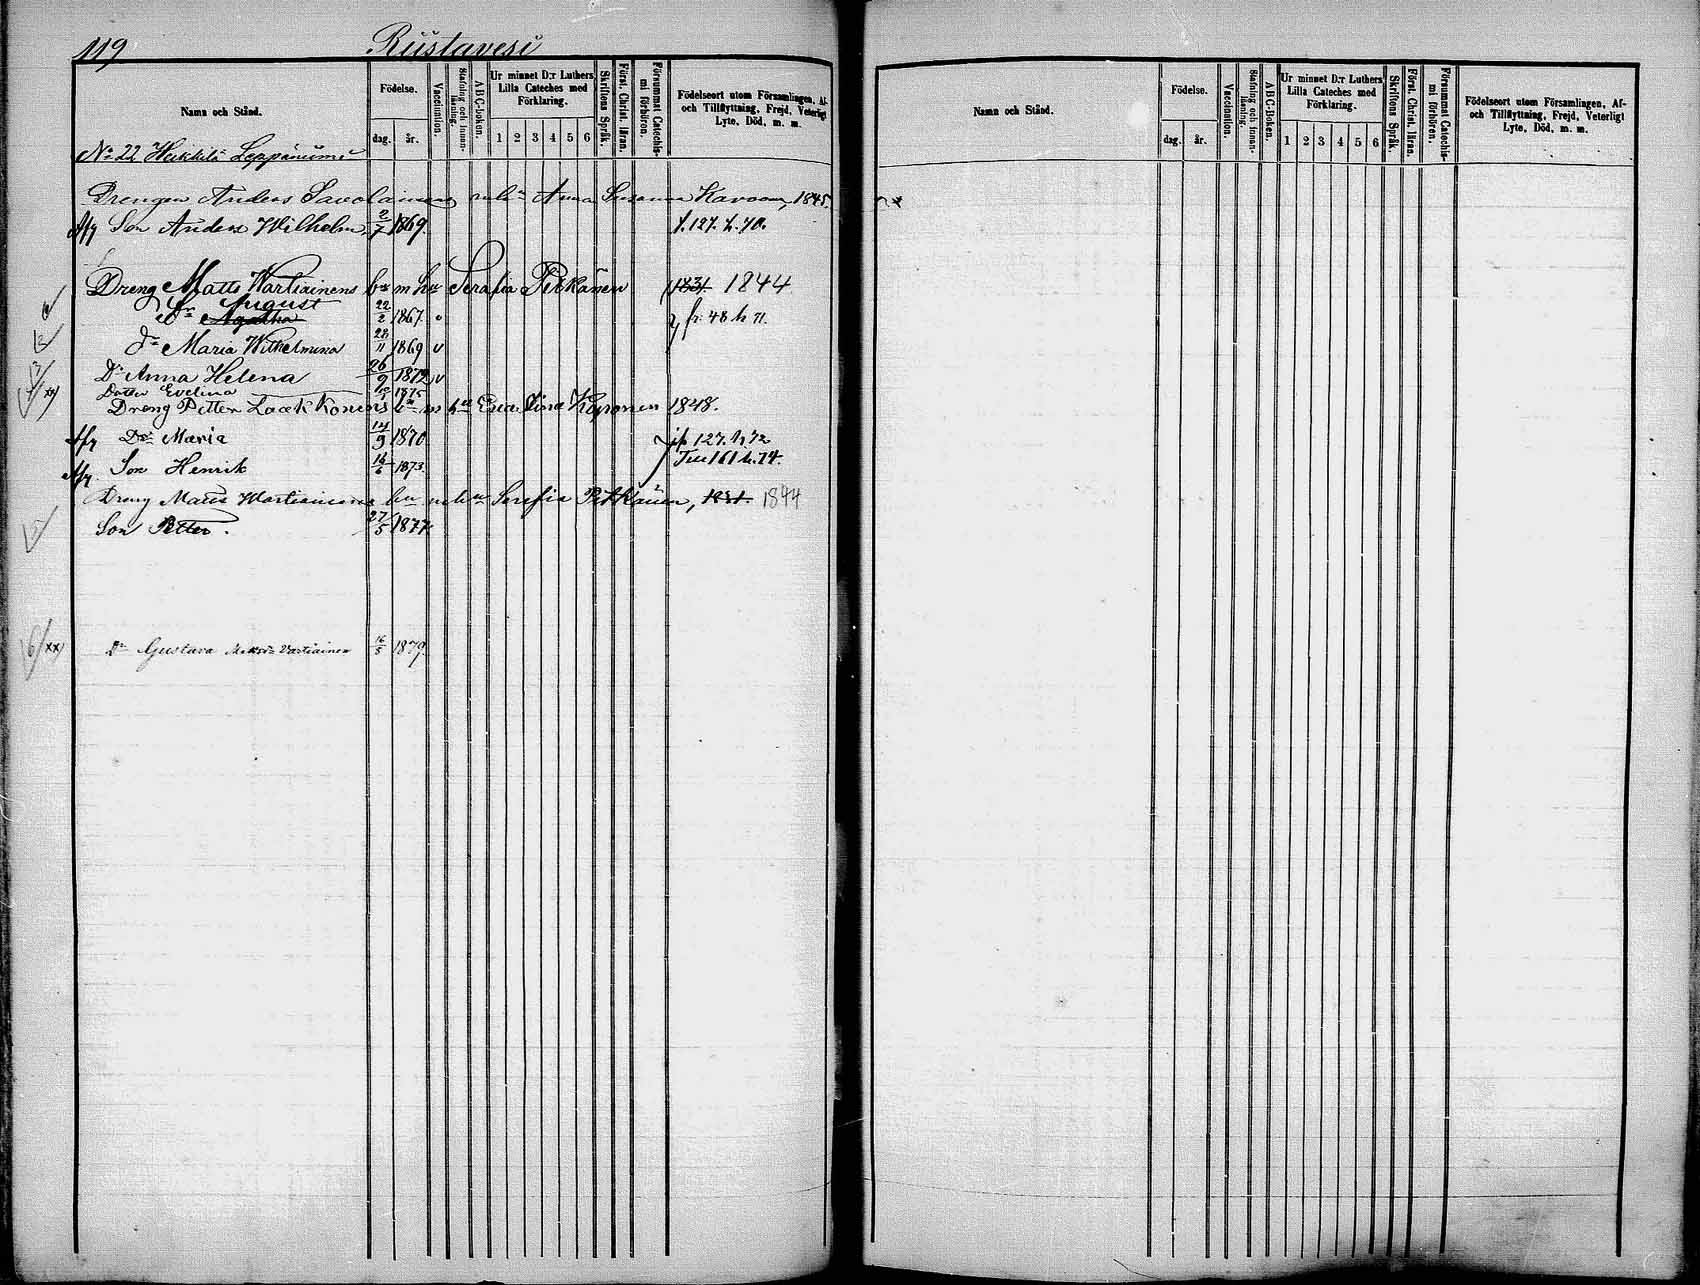 119 Riistavesi
Namn och Stånd.
Födelse.
dag. år.
Vaccination.
Stafning och innanläsning.
ABC-boken.
Ur minnet D:r Luthers
Lilla Cateches med
Förklaring.
1 2 3 4 5 6
Skriftens Språk.
Först. Christ. läran.
Försummat Catechismi förhören.
Födelseort utom Församlingen, Af-
och Tillflyttning, Frejd, Veterligt
Lyte, Död, m. m.
No 22 Heikkilä Leppäniemi
Drengen Anders Savolainens Anna Susanna 1845.
Afg Son Anders Wilhelm 2/7 1869. f. 127. h. 70.
Dreng Matts Wartiainens bn m hu Serafia Pitkänen 1831. 1844
Sn Agatha August 22/2 1867. fr. 48 h 71.
Dr Maria Wilhelmina 28/11 1869 v
Dr Anna Helena 26/9 1872 v
Dotter Evelina 1875
Dreng Petter Laakkonens bn m hu Eva Stina Kaponen 1848.
Afg Dr Maria 14/9 1870 127. h 72
Afg Son Henrik 14/6 1873. 161 h. 74.
Dreng Matts Wartiainens bn m hu Serafia Pitkänen, 1831. 1844
5 Son Petter. 27/5 1877.
6/xx) Dr Gustava Vartiainen 16/5 1879.
Namn och Stånd.
Födelse.
dag. år.
Vaccination.
Stafning och innanläsning.
ABC-Boken.
Ur minnet D:r Luthers
Lilla Cateches med
Förklaring.
1 2 3 4 5 6
Skriftens Språk.
Först. Christ. läran.
Försummat Catechismi förhören.
Födelseort utom Församlingen, Af-
och Tillflyttning, Frejd, Veterligt
Lyte, Död, m. m.